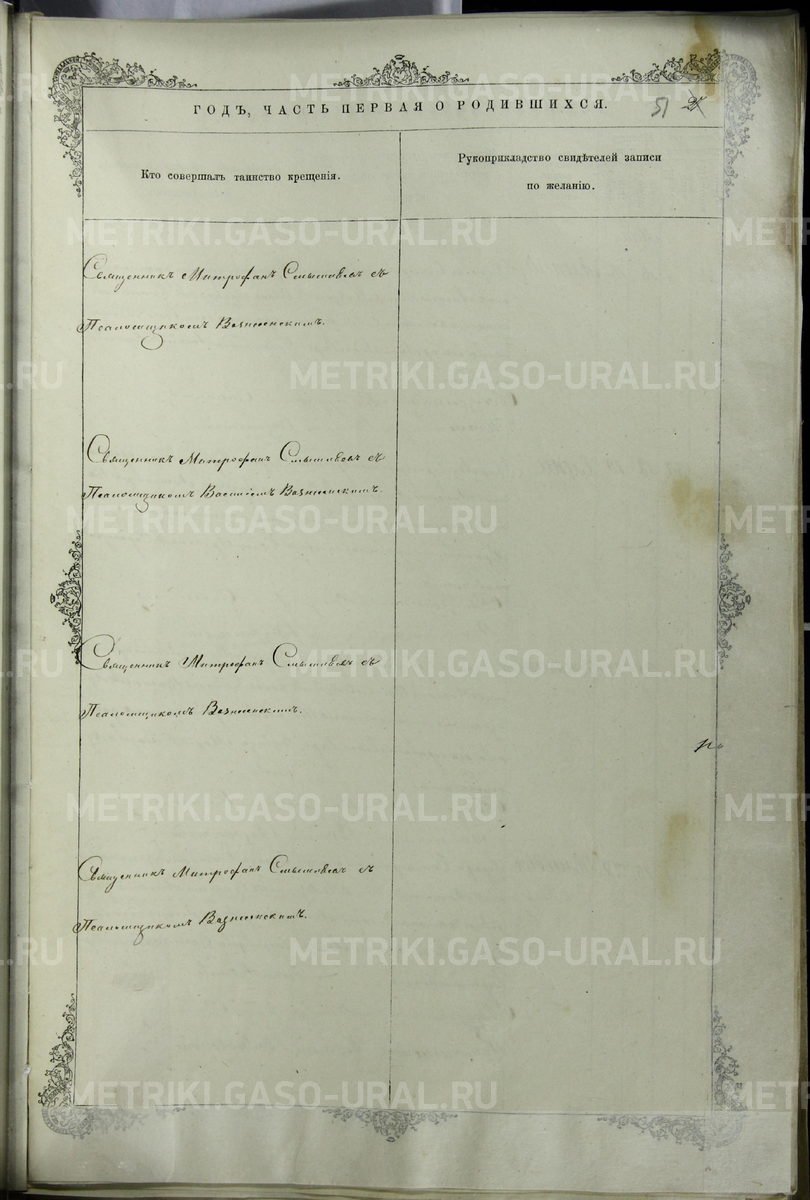 ГОДЪ, ЧАСТЬ ПЕРВАЯ О РОДИВШИХСЯ.
51
Кто совершалъ таинство крещенія.
Рукоприкладство свидѣтелей записи
по желанію.
Священникъ Митрофанъ Смышляевъ съ
Псаломщикомъ Вознесенскимъ.
Священникъ Митрофанъ Смышляевъ съ
Псаломщикомъ Василіемъ Вознесенскимъ.
Священникъ Митрофанъ Смышляевъ съ
Псаломщикомъ Вознесенскимъ.
Священникъ Митрофанъ Смышляевъ съ
Псаломщикомъ Вознесенскимъ.
METRIKI.GASO-URAL.RU